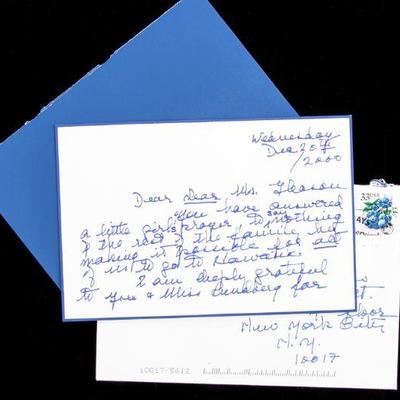 Wednesday
Dec 20th
/2000
Dear dear Mr. Gleason
You have answered
a little girl's prayer, to say nothing
of the rest of the family by
making it possible for all
of us to go to Hawaii.
I am deeply grateful
to you & Miss for
33
USA
t.
Floor
New York City
N.Y.
10017
10017-5612